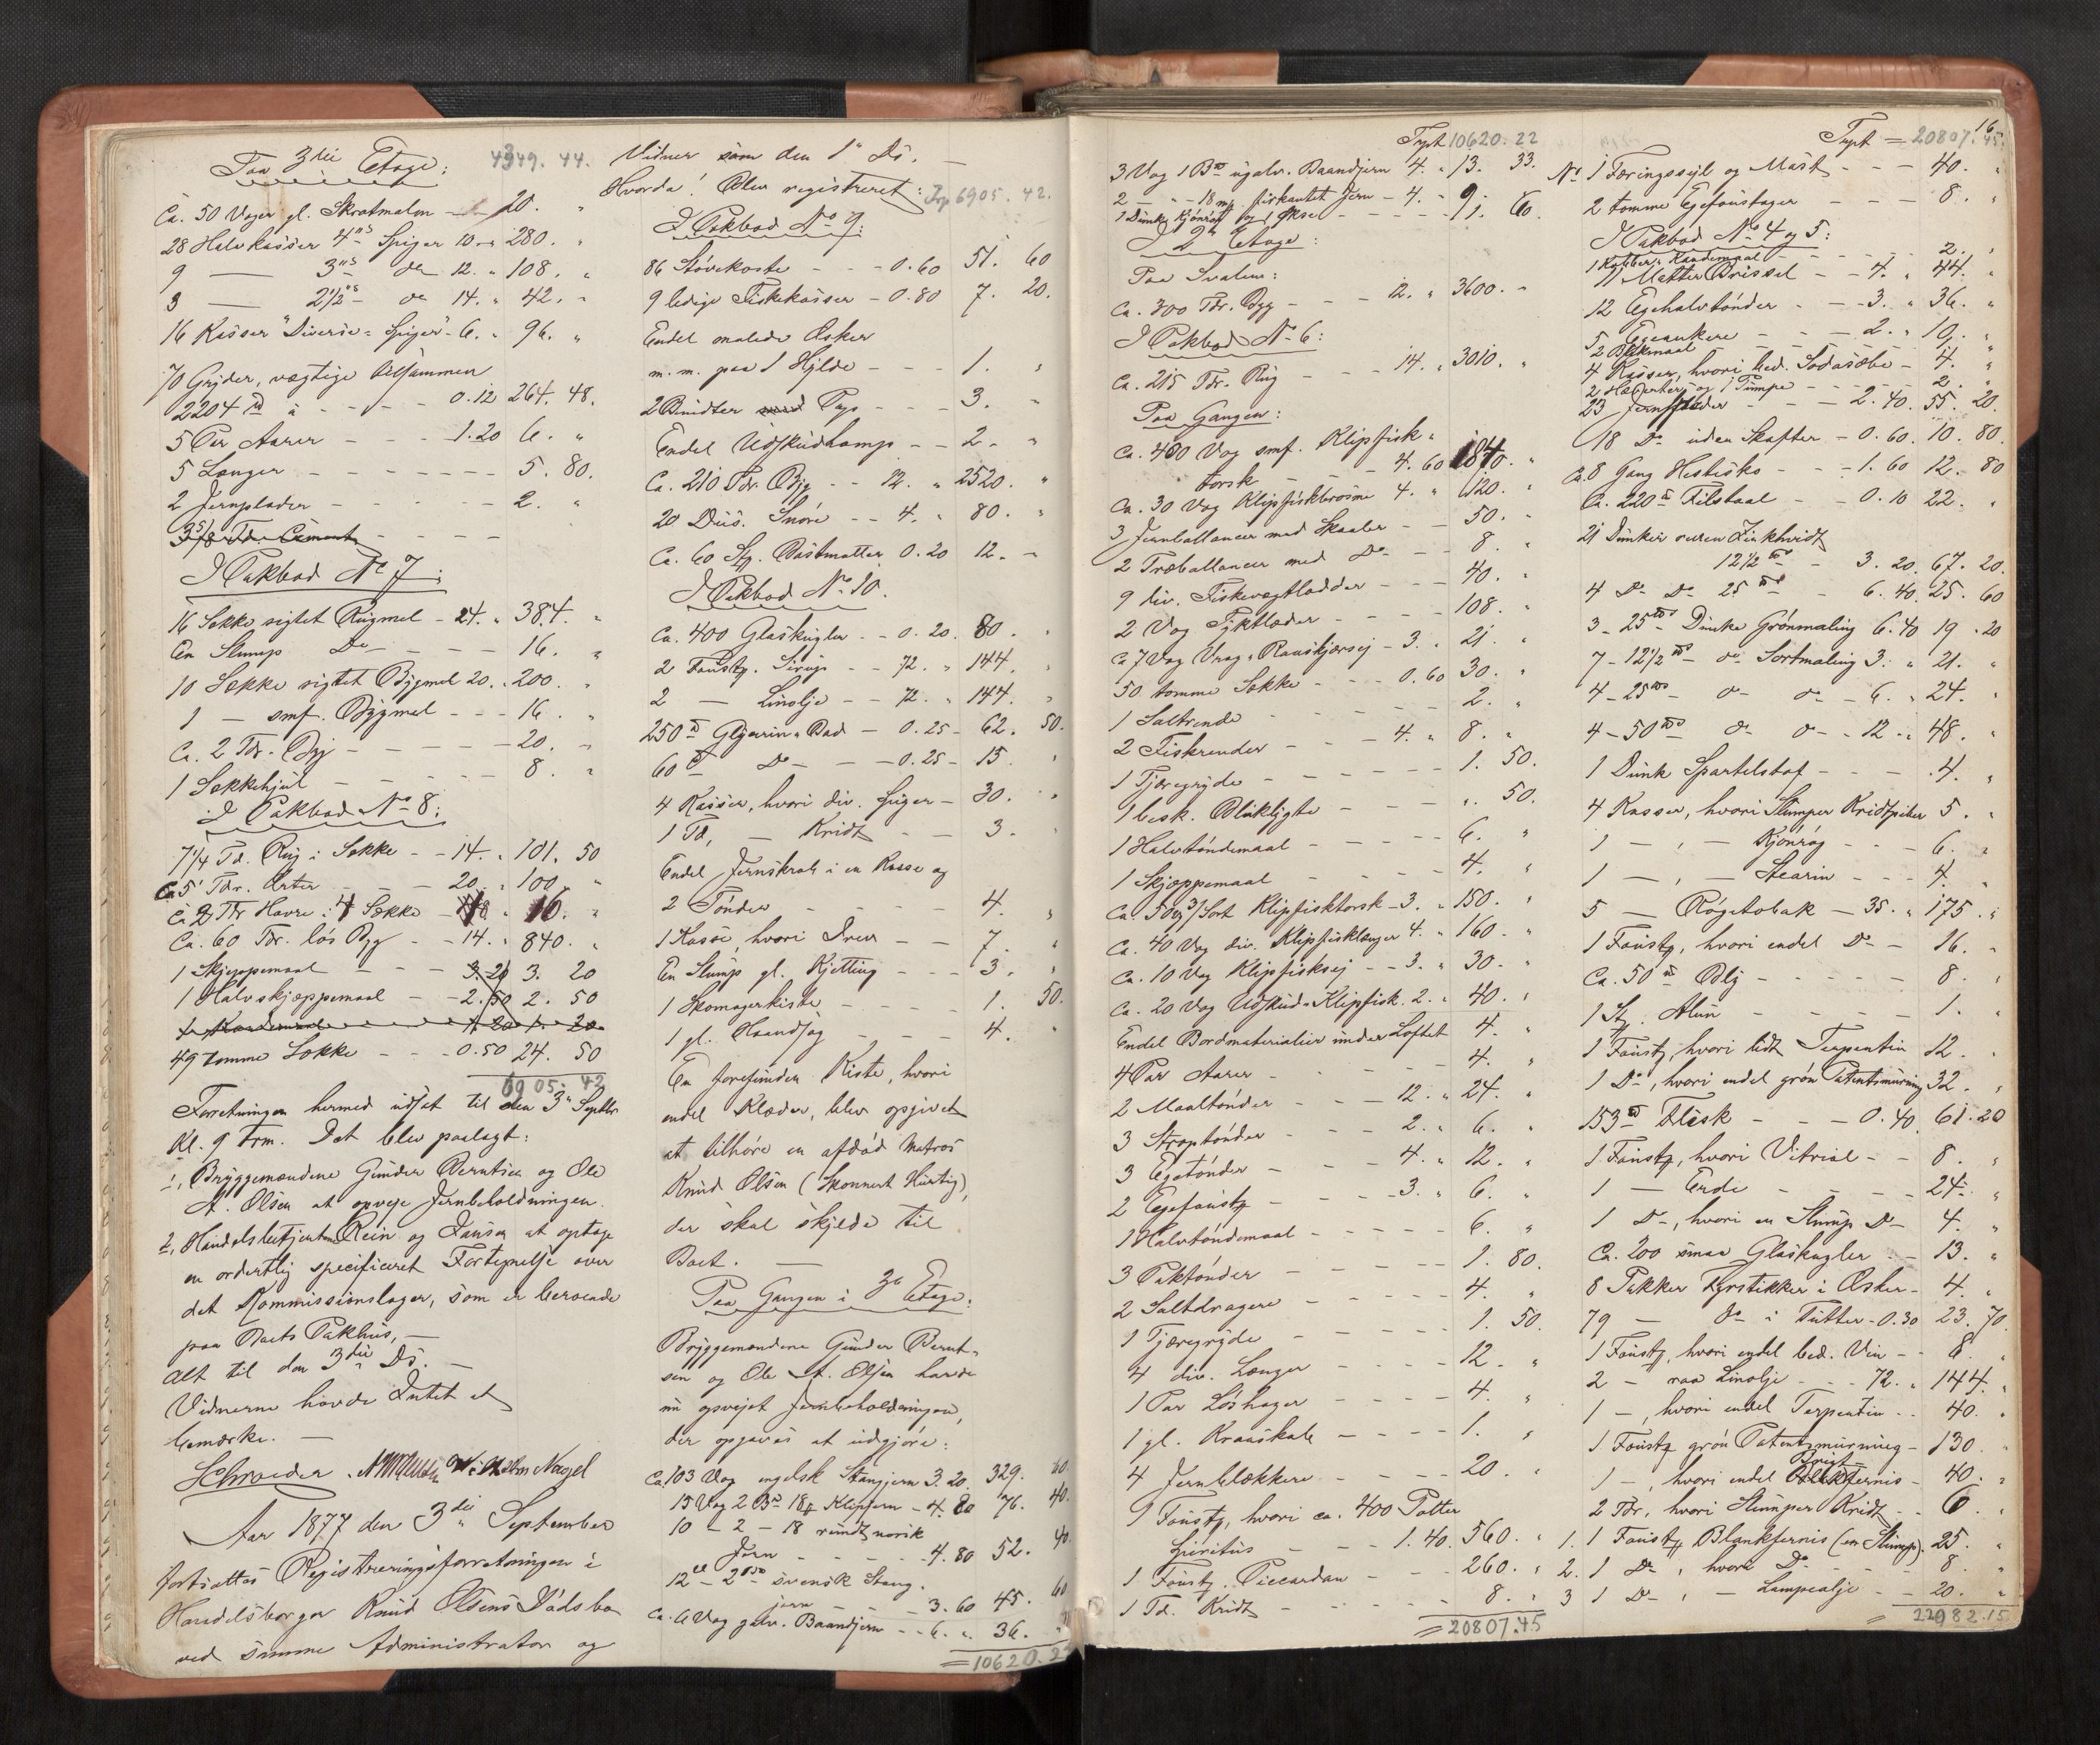 Paa 3die Etage: 4349. 44.
Ca. 50 Voger gl. Skrotmalm - 20. "
28 Halvkasser 4"s Spiger 10 - " 280. "
9 — 3"s do 12. " 108. "
3 — 2½"s do 14. " 42. "
16 Kasser "Diverse" Spiger - 6. " 96. "
70 Gryder, vægtige tilsammen
2204 ℔ à - - - 0.12 264. 48.
5 Par Aarer - - - 1.20 6. "
5 Længer - - - 5. 80.
2 Jernplader - - - 2. "
3 5/8 Tdr Cement - - -
I Pakbod No 7:
16 Sække sigtet Rugmel - 24. " 384. "
En Slump Do - - - 16. "
10 Sække sigtet Bygmel 20. " 200. "
1 — smf. Bygmel - - - 16. "
Ca. 2 Tdr. Byg - - - 20. "
1 Sækkehjul - - - 8. "
I Pakbod No 8:
7¼ Td. Rug i Sække - - 14. " 101. 50
Ca 5 Tdr. Erter - - 20. " 100. "
Ca 2 Tdr Havre i 4 Sække - 8 " 16. "
Ca. 60 Tdr. løs Byg - - 14. " 840. "
1 Skjeppemaal - - - 3.20 3. 20
1 Halvskjæppemaal - - 2.50 2. 50
1 Kandemaal 1.20 1. 20
49 tomme Sække - - - 0.50 24. 50
6905. 42
Forretningen hermed udsat til den 3" Septbr
Kl. 9 Frm. Det blev paalagt:
1, Bryggemændene Gunder Berntsen og Ole
A. Olsen at opveje Jernbeholdningen.
2, Handelsbetjentene Rein og Jansen at optage
en ordentlig specificeret Fortegnelse over
det Kommissionslager, som er beroende
paa Boets Pakhus, —
Alt til den 3die Ds. —
Vidnerne havde Intet at
bemærke. —
Schroeder. Wilhelm Nagel
Aar 1877 den 3die September
fortsattes Registreringsforretningen i
Handelsborger Knud Olsens Dødsbo
ved samme Administrator og
Vidner som den 1" Ds. —
Hvorda! Blev registreret: Trp 6905. 42.
I Pakbod No 9:
86 Støvekoste - - - 0.60 51. 60
9 ledige Fiskekasser - 0.80 7. 20.
Endel malede Æsker
m. m. paa 1 Hylde - - - 1. "
2 Bundter Pap - - - 3. "
Endel Udskudhamp - - 2. "
Ca. 210 Tdr. Byg - - 12. " 2520. "
20 Dus. Snøre - - 4. " 80. "
Ca. 60 Stk. Bastmatter 0.20 12. -
I Pakbod No 10.
Ca. 400 Glaskugler - - 0.20. 80. "
2 Foustg. Sirup - - 72. " 144. "
2 — Linolje - - 72. " 144. "
250 ℔ Glycerin-Bad - 0.25 - 62. 50.
60 ℔ Do - - - 0.25 - 15. "
4 Kasser, hvori div. Spiger - 30. "
1 Td, — Kridt - - 3. "
Endel Jernskrab i en Kasse og
2 Tønder - - - 4. "
1 Kasse, hvori Drev - - 7. "
En Slump gl. Kjetting - - - 3. "
1 Skomagerkiste - - - 1. 50.
1 gl. Haandsag - - - 4. "
En forefunden Kiste, hvori
endel Klæder, blev opgivet
at tilhøre en afdød Matros
Knud Olsen (Skonnert Hurtig),
der skal skylde til
Boet. —
Paa Gangen i 3e Etage:
Bryggemændene Gunder Bernt-
sen og Ole A. Olsen havde
nu opvejet Jernbeholdningen,
der opgaves at udgjøre:
Ca. 103 Vog engelsk Stangjern 3.20. 329. 60.
15 Vog 2 Bd 18 ℔ Klipjern - 4.80 76. 40.
10 - 2 - 18 rundt norsk
Jern - - - 4.80 52. 40
12 - 2 svensk Stang-
jern - - - 3.60 45. 60
Ca. 6 Vog galv. Baandjern - - 6. " 36. "
= 10620.22
Trpt 10620. 22
3 Vog 1 Bd ugalv. Baandjern 4. " 13. 33.
2 - " - 18 mk firkantet Jern - 4. " 9. 60
1 Dunke Kjønrøg og 1 Økse - - - 1. 60.
I 2" Etage:
Paa Svalen:
Ca. 300 Tdr. Byg - - - 12. " 3600. "
I Pakbod No 6:
Ca. 215 Tdr. Rug - - - 14. " 3010. "
Paa Gangen:
Ca. 400 Vog smf. Klipfisk-
torsk - - - 4.60 1840. "
Ca. 30 Vog Klipfiskbrosme 4. " 120. "
3 Jernballancer med Skaaler - - 50. "
2 Træballancer med Do - - 8. "
9 div. Fiskevægtlodder - - - 40. "
2 Vog Tyktlæder - - - 108. "
Ca 7 Vog Vrag-Rauskjærsej - 3. " 21. "
50 tomme Sække - - - 0.60 30. "
1 Saltrende - - - 2. "
2 Fiskrender - - - 4. " 8. "
1 Tjæregryde - - - 1. 50.
1 besk. Blikløgte - - - ". 50.
1 Halvtøndemaal - - - 6. "
1 Skjæppemaal - - - 4. "
Ca. 50 Vog 3/Sort Klipfisktorsk - 3. " 150. "
Ca. 40 Vog div. Klipfisklænger 4. " 160. "
Ca. 10 Vog Klipfisksej - - 3. " 30. "
Ca. 20 Vog Udskud-Klipfisk. 2. " 40. "
Endel Bordmaterialier under Loftet 4. "
4 Par Aarer - - - 4. "
2 Maaltønder - - - 12. " 24. "
3 Straptønder - - - 2. " 6. "
3 Egetønder - - - 4. " 12. "
2 Egefoustg - - - 3. " 6. "
1 Halvtøndemaal - - - 6. "
3 Paktønder - - - 1. 80.
2 Saltdragere - - - 4. "
1 Tjæregryde - - - 1. 50.
4 div. Længer - - - 12. "
1 Par Løshager - - - 4. "
1 gl. Kraaskale - - - 1. "
4 Jernblokkere - - - 20. "
1 Foustg, hvori ca. 400 Potter
Spiritus - - - 1.40. 560. "
1 Foustg. Piccardan - - - 260. "
1 Td. Kridt - - - 8. "
= 20807.45
16
Trpt = 20807. 45.
No 1 Færingssejl og Mast - - - 40. "
2 tomme Egefoustager - - - 8. "
I Pakbod No 4 og 5:
1 Kobber-Kandemaal - - - 2. "
11 Matter Brissel - - 4. " 44. "
12 Egehalvtønder - - - 3. " 36. "
5 Egeankere - - - 2. " 10. "
2 Blikmaal
4 Kasser, hvori bed. Sodasæbe - 4. "
2 Hæverter og 1 Pumpe - - - 2. "
23 Jernspader - - - 2.40. 55. 20.
18 Do uden Skafter - 0.60. 10. 80.
Ca 8 Gang Hestesko - - - 1.60 12. 80
Ca. 220 ℔ Filstaal - - 0.10 22. "
21 Dunker reven Zinkhvidt
12½ ℔s - 3.20. 67. 20.
4 Do Do 25 ℔s - 6.40. 25. 60
3 - 25 ℔s Dunke Grønmaling 6.40 19. 20
7 - 12½ ℔s do Sortmaling 3. " 21. "
4 - 25 ℔s do do - 6. " 24. "
4 - 50 ℔s do do - 12. " 48. "
1 Dunk Spartelstof - - - 4. "
4 Kasser, hvori Slumper Kridtpiber 5. "
1 — " — Kjønrøg - - - 6. "
1 — " — Stearin - - - 4. "
5 — Røgetobak - 35. " 175. "
1 Foustg, hvori endel Do - 16. "
Ca. 50 ℔ Bly - - - 8. "
1 Stk. Alun - - - 1. "
1 Foustg, hvori lidt Terpentin 12. "
1 Do, hvori endel grøn Patentmurning 32. "
153 ℔ Flesk - - - 0.40. 61. 20
1 Foustg, hvori Vitriol - - 8. "
1 — Erde - - - 24. "
1 Do, hvori en Slump Do - 4. "
Ca. 200 smaa Glaskugler - - 13. "
8 Pakker Fyrstikker i Æsker - 4. "
79 — do i Tutter - 0.30 23. 70.
1 Foustg, hvori endel bed. Vin - - 8. "
2 - raa Linolje - - - 72. " 144. "
1 - , hvori endel Terpentin - - 40. "
1 Foustg grøn Patentmurning - 130. "
1 - , hvori endel fernis - 40. "
2 Tdr, hvori Slumper Kridt - 6. "
1. 1 Foustg Blankfernis (en Slump). 25. "
2. 1 Do, hvori Do - - 8. "
3 1 Do, — Lampeolje - - 20. "
22982.15